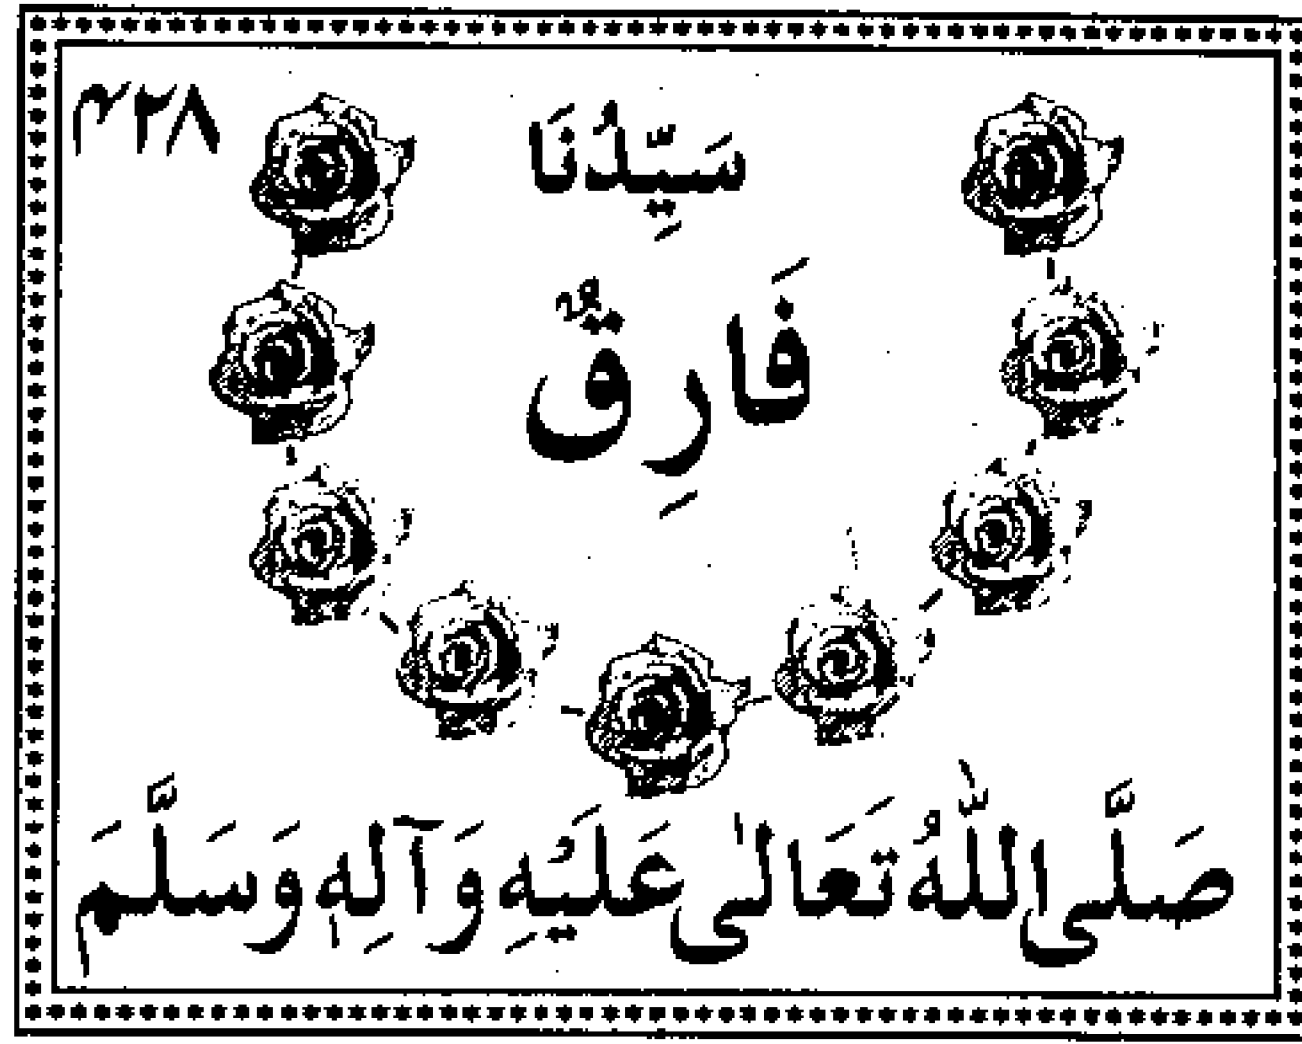 ۴۲۸
سَيِّدُنَا
فَارِقٌ
صَلَّى اللّٰهُ تَعَالٰى عَلَيْهِ وَآلِهٖ وَسَلَّمَ